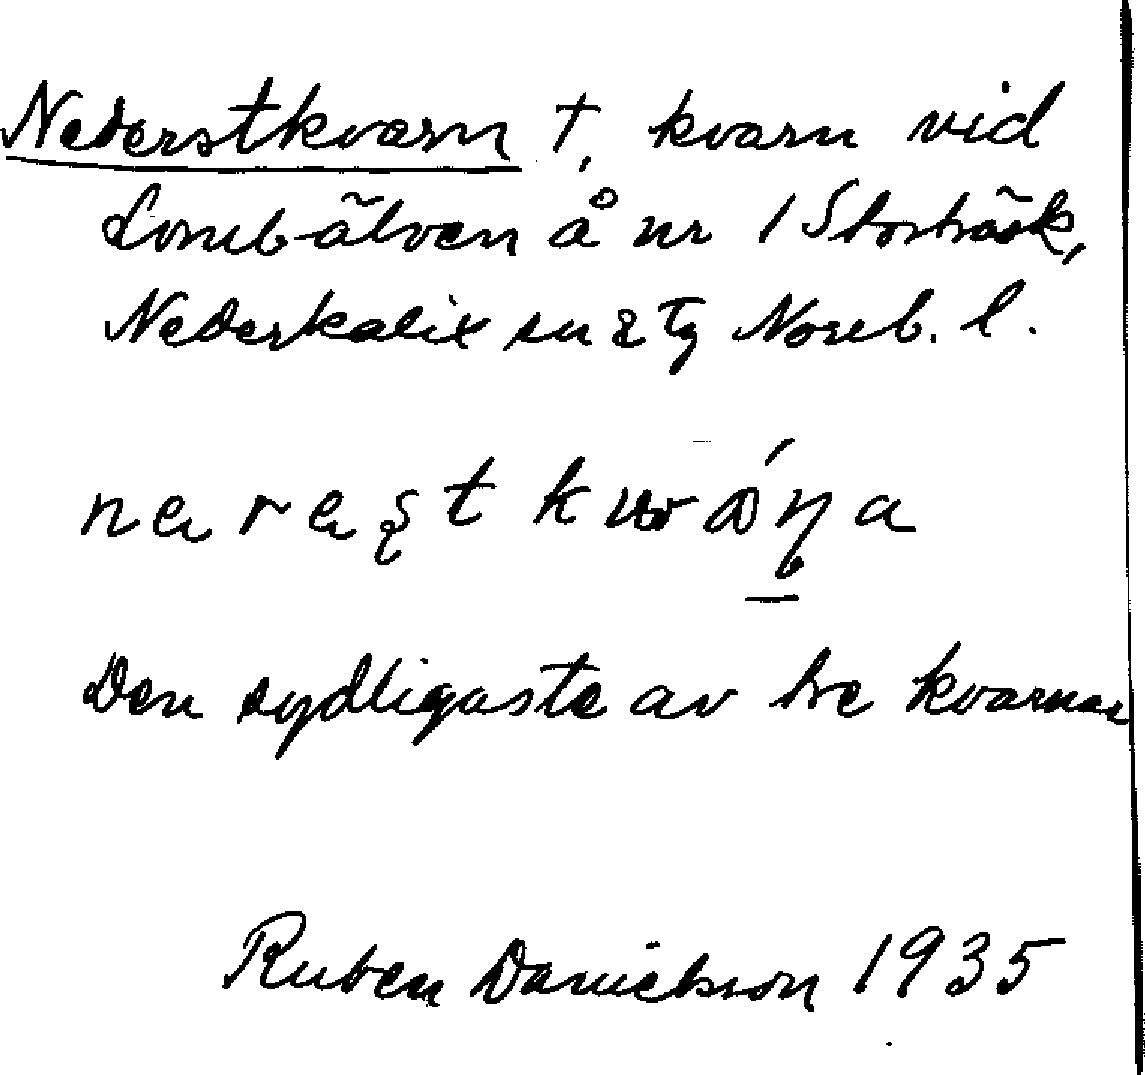 Nederstkvarn †, kvarn vid
Lomb-älven å nr 1 Storträsk,
Nederkalix sn & tg Norrb. l.
Den sydligaste av tre kvarnar
Ruben Danielsson 1935